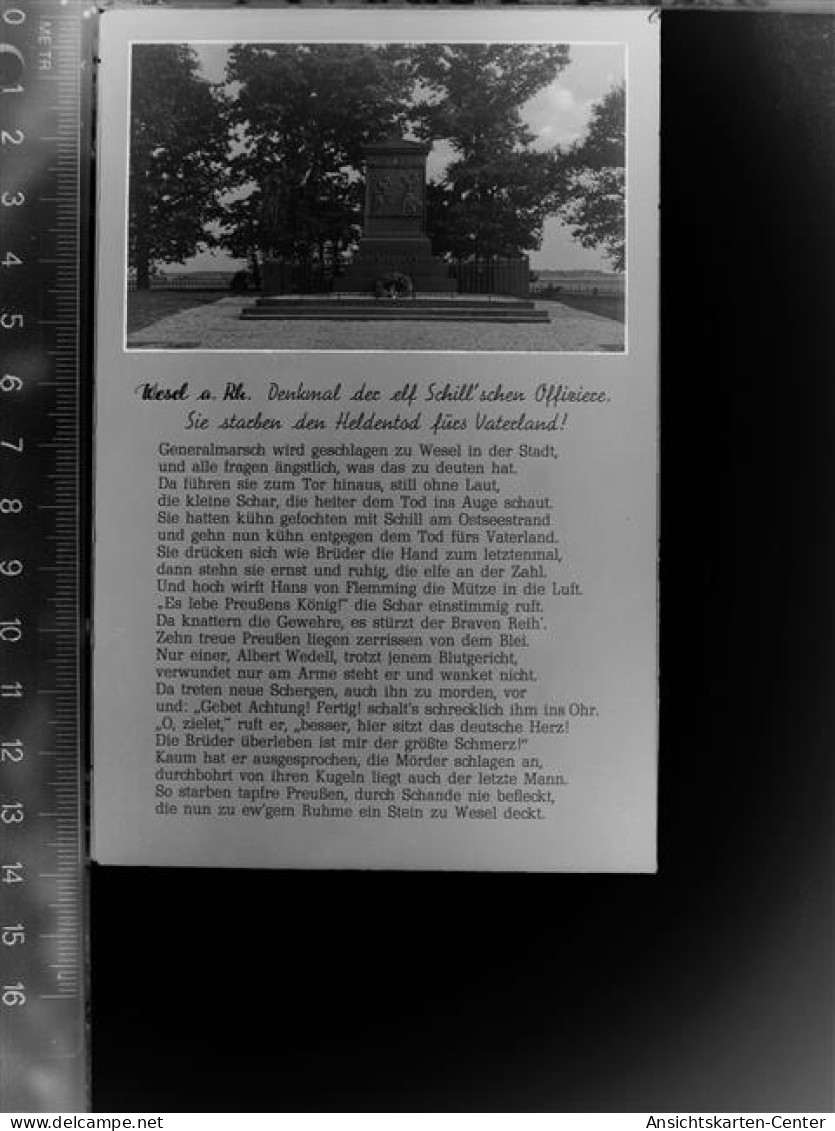 METR
0 1 2 3 4 5 6 7 8 9 10 11 12 13 14 15 16
Wesel a. Rh. Denkmal der elf Schill'schen Offiziere.
Sie starben den Heldentod fürs Vaterland!
Generalmarsch wird geschlagen zu Wesel in der Stadt,
und alle fragen ängstlich, was das zu deuten hat.
Da führen sie zum Tor hinaus, still ohne Laut,
die kleine Schar, die heiter dem Tod ins Auge schaut.
Sie hatten kühn gefochten mit Schill am Ostseestrand
und gehn nun kühn entgegen dem Tod fürs Vaterland.
Sie drücken sich wie Brüder die Hand zum letztenmal,
dann stehn sie ernst und ruhig, die elfe an der Zahl.
Und hoch wirft Hans von Flemming die Mütze in die Luft.
„Es lebe Preußens König!" die Schar einstimmig ruft.
Da knattern die Gewehre, es stürzt der Braven Reih'.
Zehn treue Preußen liegen zerrissen von dem Blei.
Nur einer, Albert Wedell, trotzt jenem Blutgericht,
verwundet nur am Arme steht er und wanket nicht.
Da treten neue Schergen, auch ihn zu morden, vor
und: „Gebet Achtung! Fertig! schalt's schrecklich ihm ins Ohr.
„O, zielet," ruft er, „besser, hier sitzt das deutsche Herz!
Die Brüder überleben ist mir der größte Schmerz!"
Kaum hat er ausgesprochen, die Mörder schlagen an,
durchbohrt von ihren Kugeln liegt auch der letzte Mann.
So starben tapfre Preußen, durch Schande nie befleckt,
die nun zu ew'gem Ruhme ein Stein zu Wesel deckt.
delcampe.net
Ansichtskarten-Center